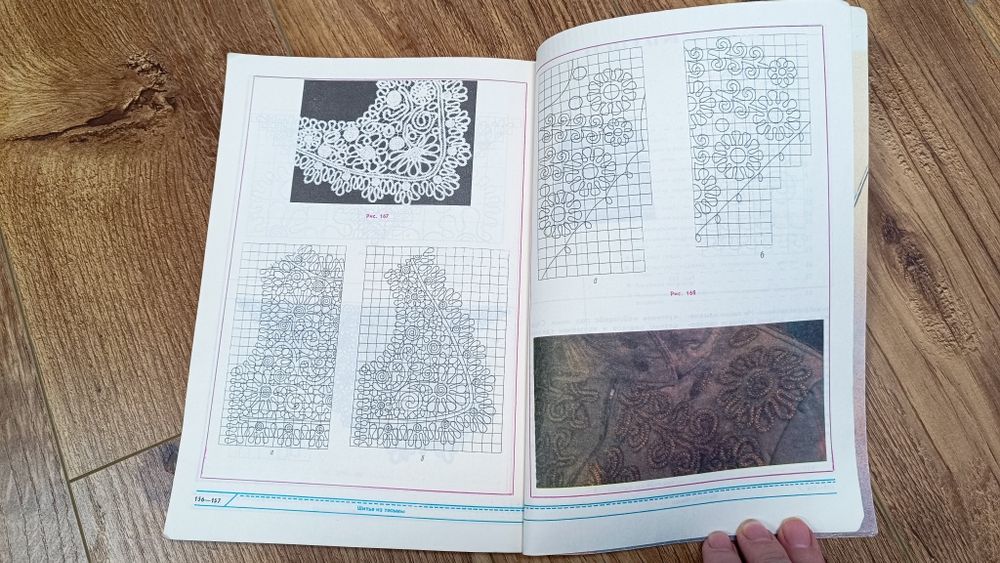 Рис. 167
а
б
156—157
Шитье из тесьмы
а
б
Рис. 168